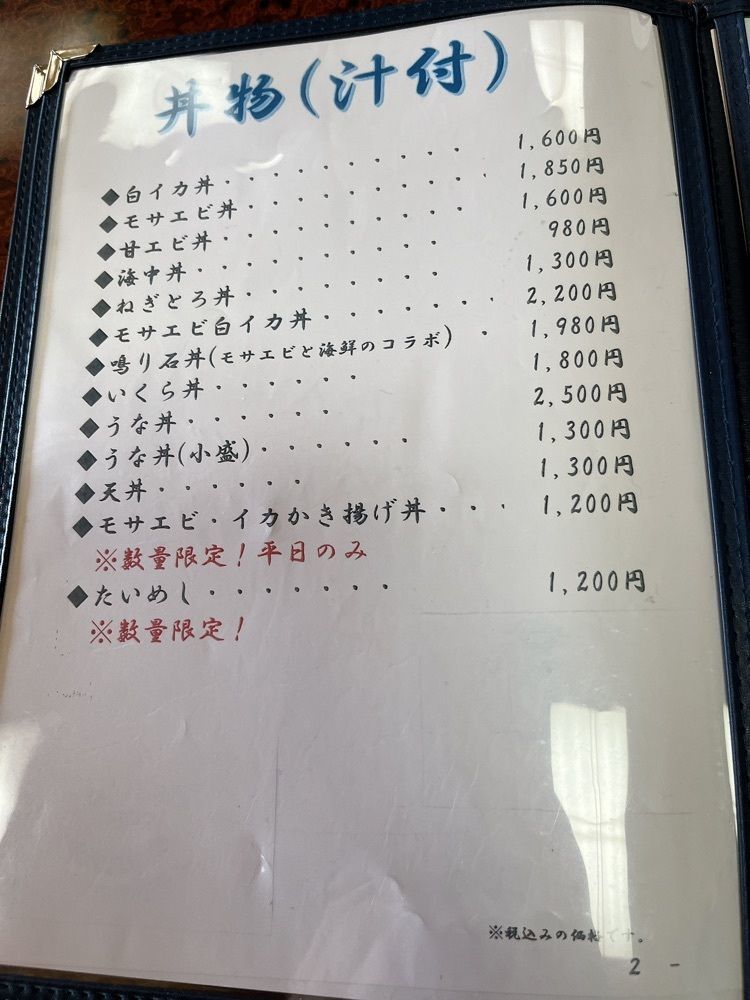 丼物(汁付)
◆白イカ丼・・・・・・・・・・ 1,600円
◆モサエビ丼・・・・・・・・・ 1,850円
◆甘エビ丼・・・・・・・・・ 1,600円
◆海中丼・・・・・・・・・ 980円
◆ねぎとろ丼・・・・・・・・ 1,300円
◆モサエビ白イカ丼・・・・・・・ 2,200円
◆鳴り石丼(モサエビと海鮮のコラボ)・ 1,980円
◆いくら丼・・・・・・ 1,800円
◆うな丼・・・・・・ 2,500円
◆うな丼(小盛)・・・・・・ 1,300円
◆天丼・・・・・・ 1,300円
◆モサエビ・イカかき揚げ丼・・・ 1,200円
※数量限定!平日のみ
◆たいめし・・・・・・・ 1,200円
※数量限定!
※税込みの価格です。
2 -